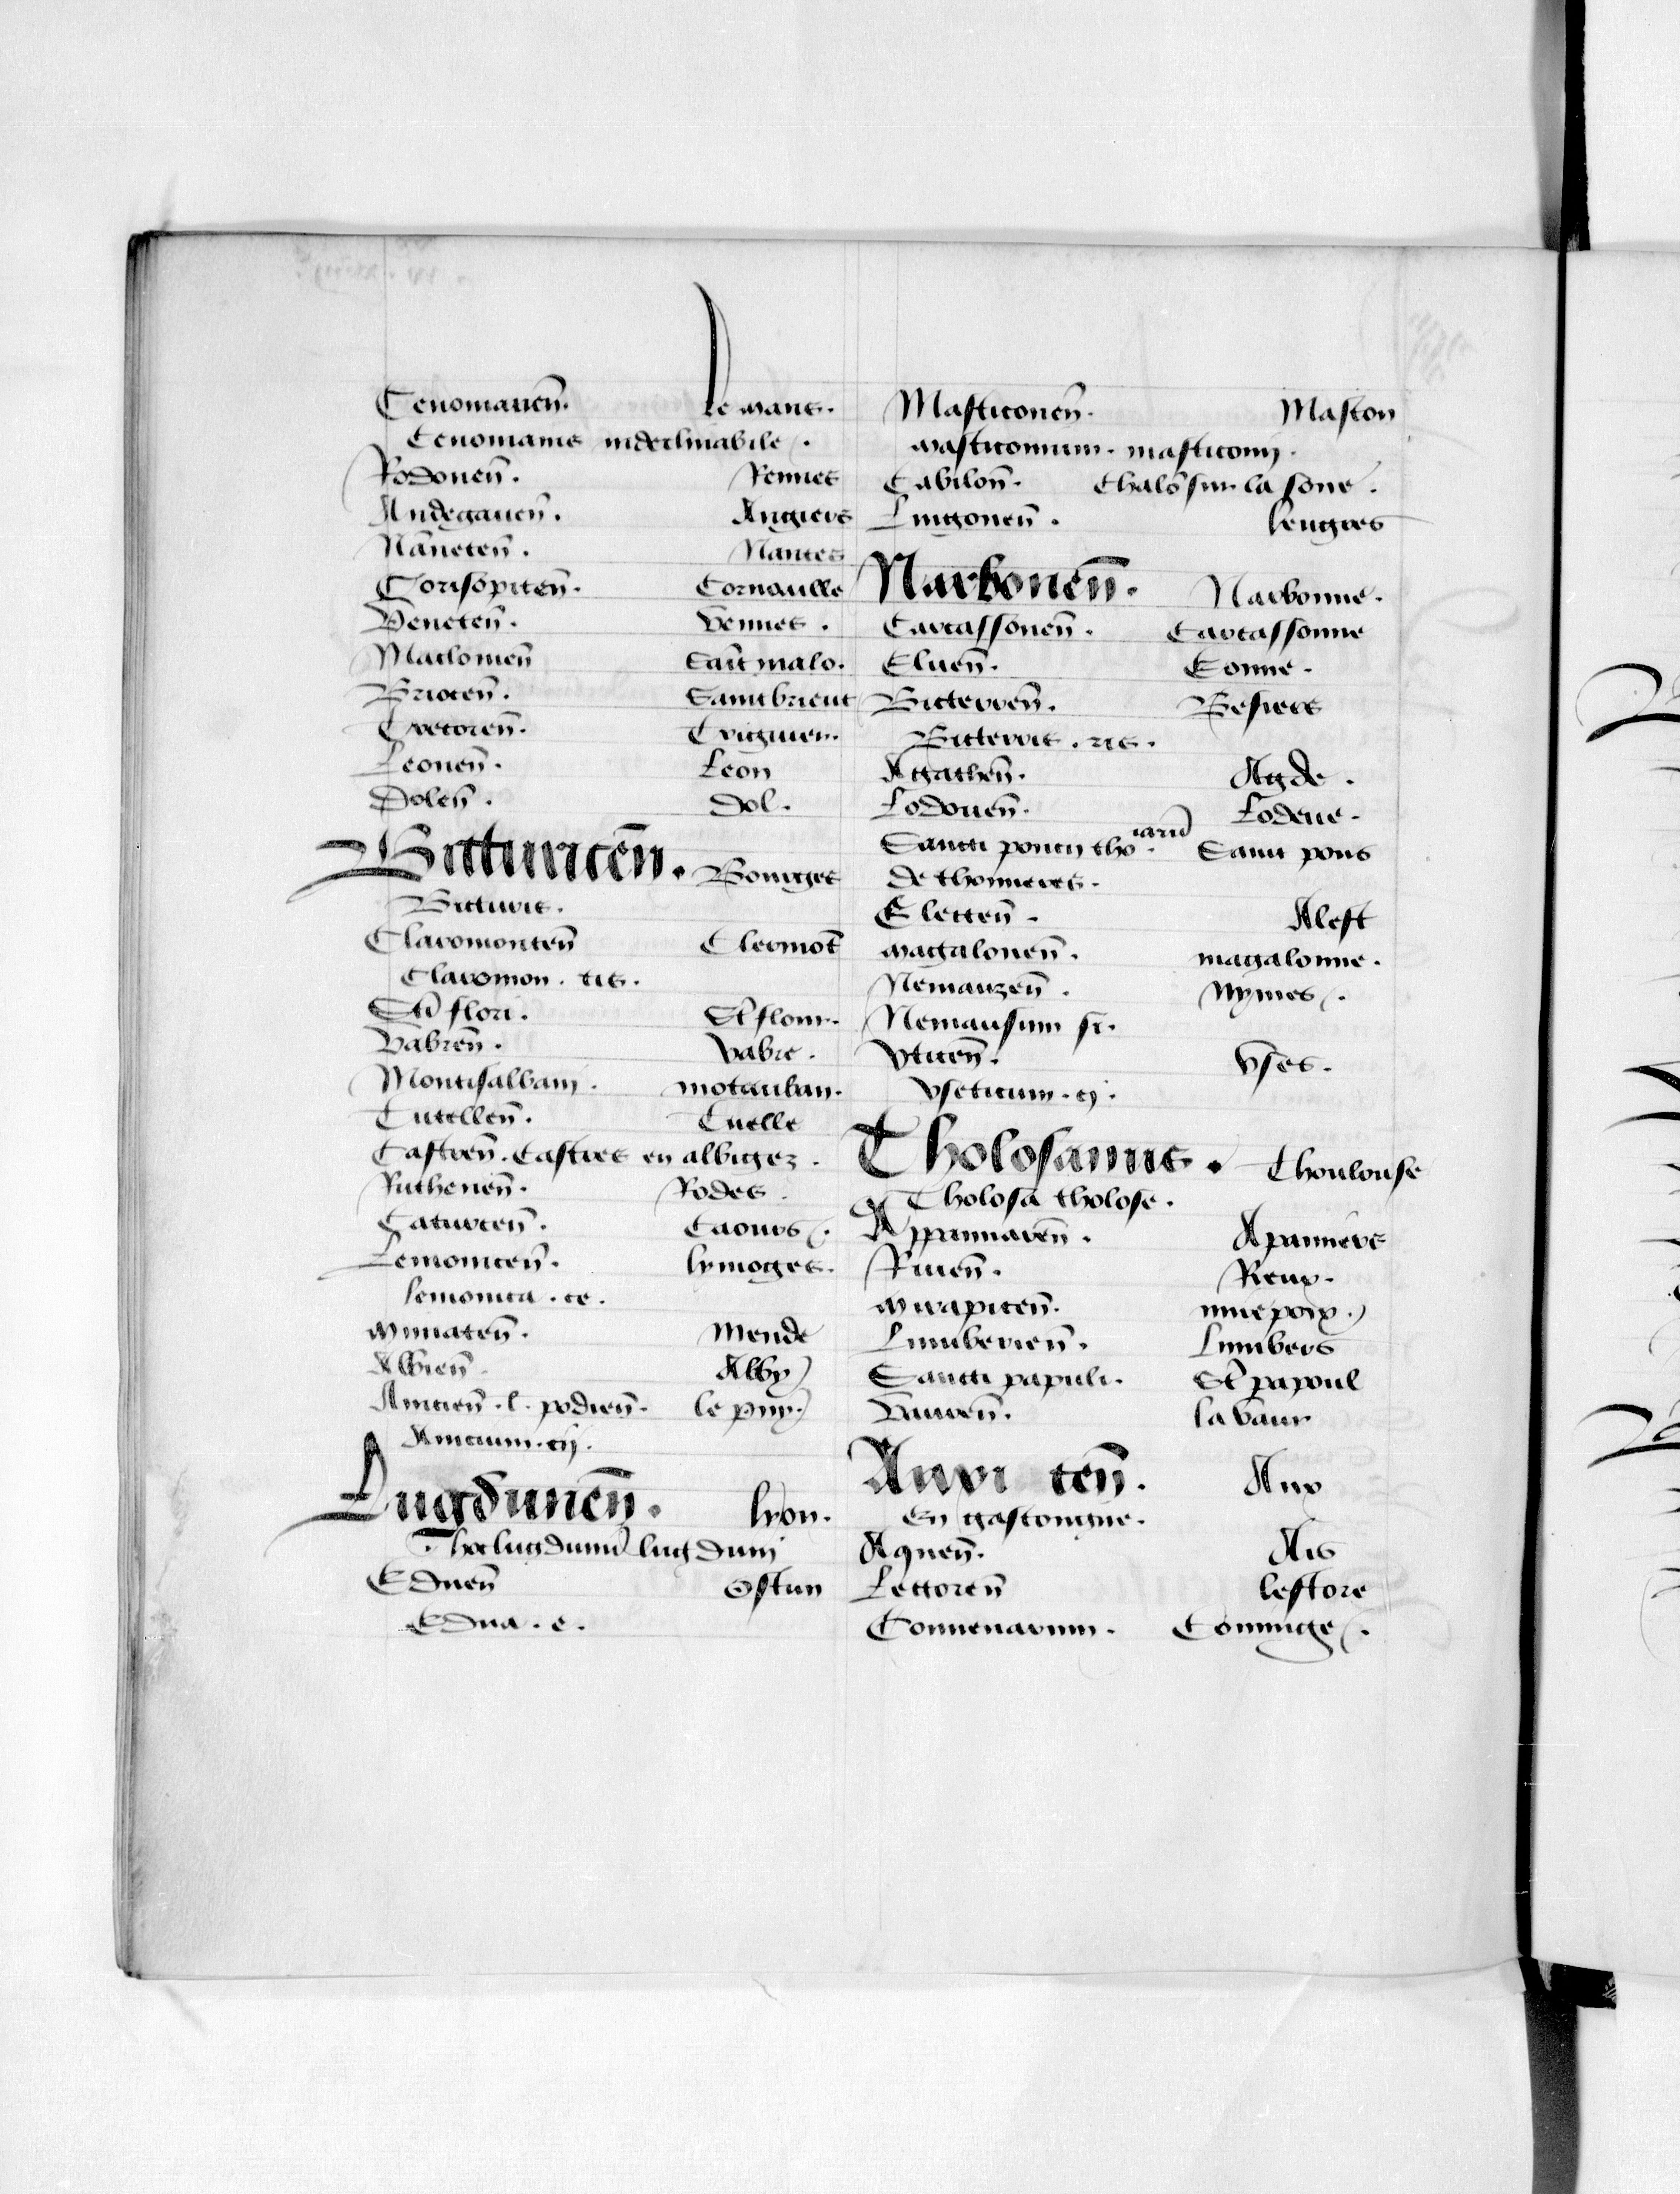 Cenomanen̄. le mans.
Cenomanis indeclinabile.
Rodonen̄. Rennes
Andegauen̄. Angiers
Nāneten̄. Nantes
Corisopiten̄. Cornoaille
Veneten̄. Vennes.
Maclouien̄ Saīt malo.
Briocen̄. Sainctbrieut
Trecoren̄. Triguier.
Leonen̄. Leon
Dolen̄. Dol.
Bitturicen̄. Bourges
Bitturis.
Claromonten̄ Clermōt
Claromon. tis.
Sti flori. St flour.
Vabren̄. Vabre.
Montisalbani. mōtauban.
Tutellen̄. Tuelle
Castren̄. Castres en albigez.
Ruthenen̄. Rodes.
Caturcen̄. Caours.
Lemonicen̄. lymoges.
lemonica. ce.
Mimaten̄. Mende
Albien̄. Alby
Anicien̄. l. podien̄. le puy
Anicium. cij.
Lugdunen̄. lyon.
Hoc lugdunū lugduni
Eduen̄ Ostun
Edua. e.
Masticonen̄. Mascon
Masticonium. masticonij.
Cabilon̄. Chalō sur la sone.
Lingonen̄. lengres
Narbonen̄. Narbonne.
Carcassonen̄. Carcassonne
Eluen̄. Eonne.
Bitterren̄. Besiers
Bitterris. ris.
Agathen̄. Agde.
Lodouen̄. Lodeue.
Sancti poncij tho. iarū Sainct pons
de thomieres.
Electen̄. Alest
Magalonen̄. magalonne.
Nemauzen̄. Nymes.
Nemausum si.
Vticen̄. Vses.
Vseticum. cj.
Tholosanus. Thoulouse
Tholosa tholose.
Appamiaren̄. Apamiers
Riuen̄. Rieux.
Mirapicen̄. mirepoix.
Lumberien̄. Lumbers
Sancti papuli. St papoul
Vauren̄. la Vaur
Auxi ten̄. Aux
En gascoingne.
Aquen̄. Ais
Lectoren̄ lestore
Conuenarum. Cominge.